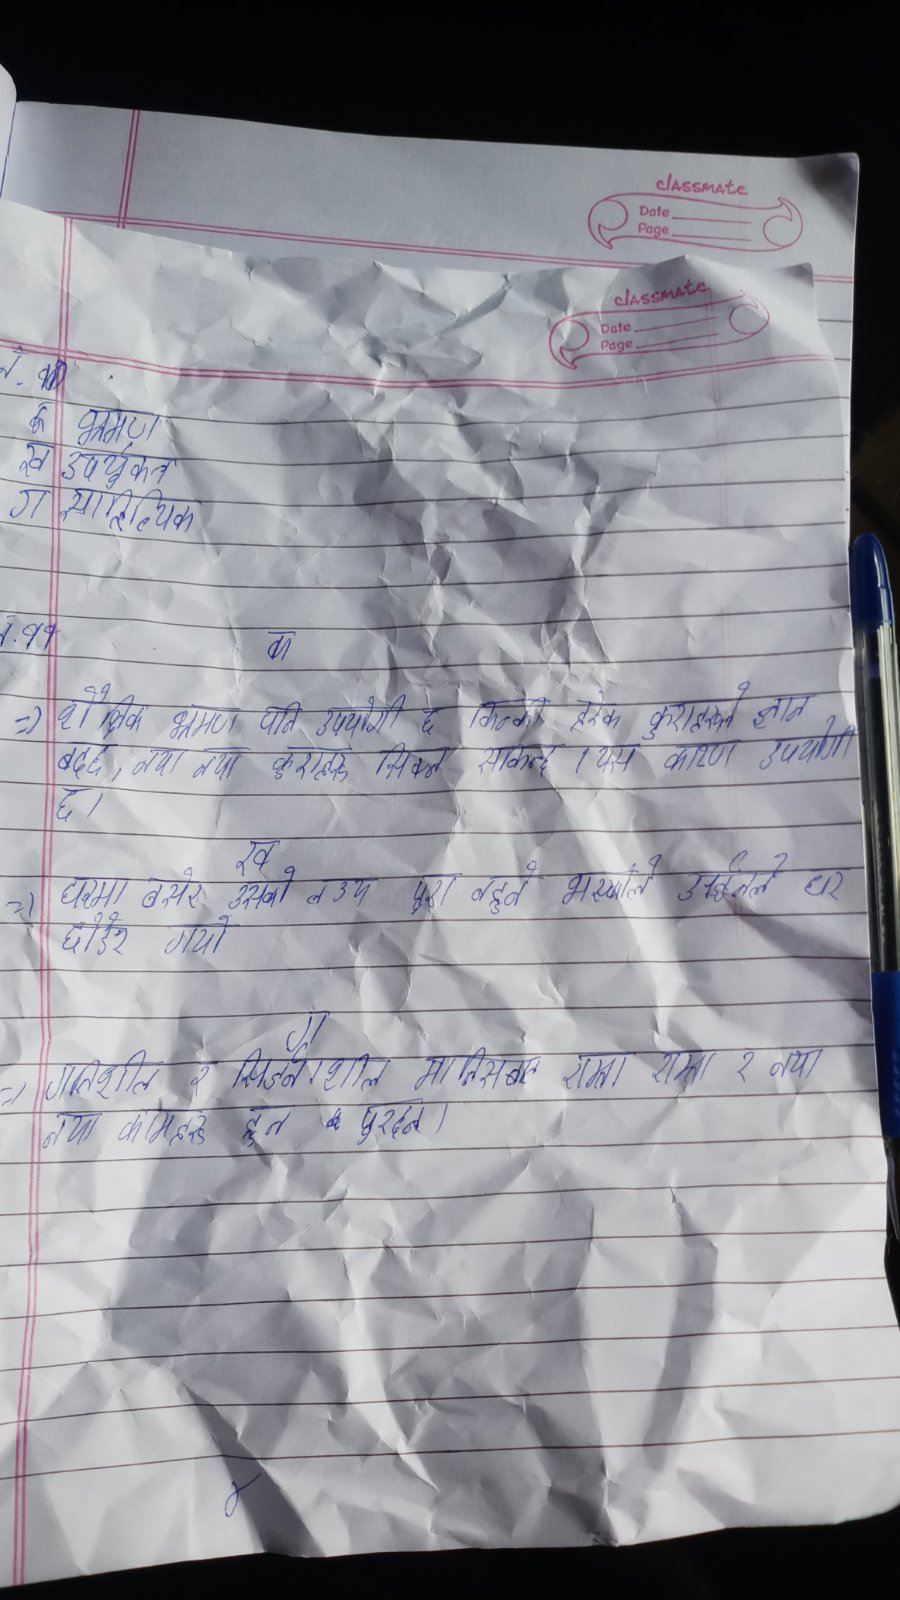 classmate
Date
Page
classmate
Date
Page
नं. १०
क भ्रमण
ख उपयुक्त
ग साहित्यिक
नं. ११
क
=) शैक्षिक भ्रमण पनि उपयोगी छ किनकी हरेक कुराहरुको ज्ञान
बढ्छ, नया नया कुराहरु सिक्न सकिन्छ । यस कारण उपयोगी
छ।
ख
=) घरमा बसेर उसको लक्ष्य पुरा नहुने भएकोले उर्जनले घर
छोडेर गयो
ग
=) गतिशील र सिर्जनशील मानिसबाट राम्रा राम्रा र नया
नया कामहरु हुन पुग्दछन।